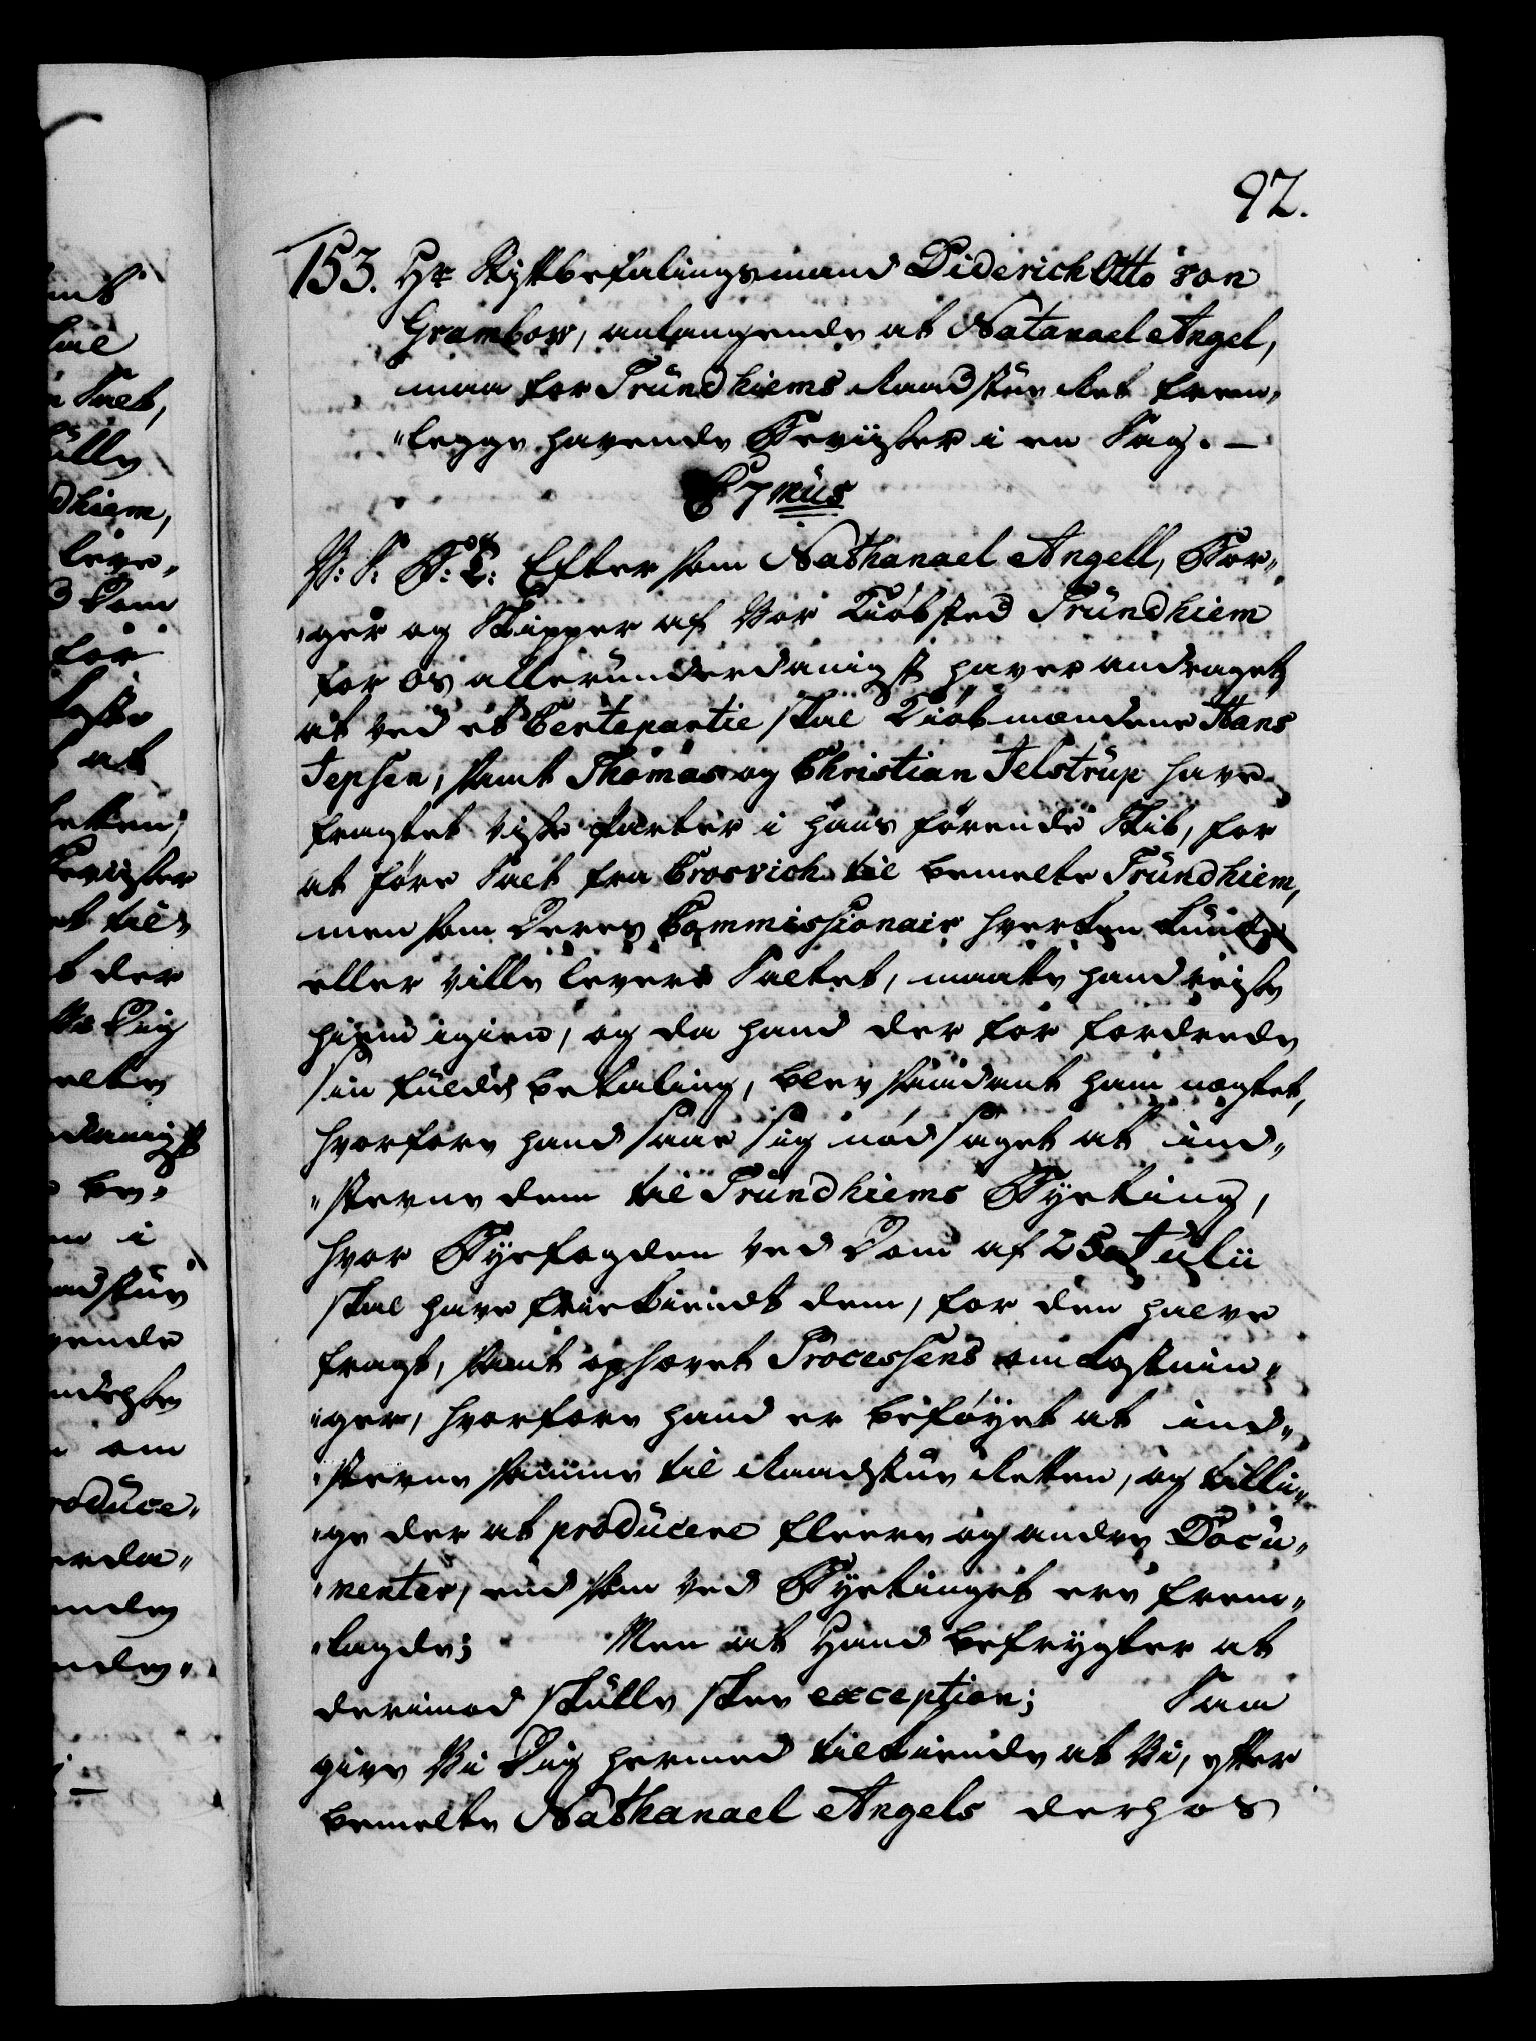 92.
153. Hr. Stiftbefalingsmand Diderich Otto von
Grambow, anlangende at Natanael Angel,
maa for Trundhiems Raadstue Ret frem„
„legge havende Beviiser i en Sag. –
C7mus
V: S: G: T: Eftersom Nathanael Angell, Bor„
„ger og Skipper af Vor Kiøbsted Trundhiem
for os allerunderdanigst haver andraget,
at ved et Certepartie skal Kiøbmændene Hans
Jepsen, samt Thomas og Christian Jelstrup have
fragtet visse Parter i hans førende Skib, for
at føre Salt fra Crosvich til bemelte Trundhiem,
men som Deres Commissionair hverken kunde
eller ville levere Saltet, maatte hand reise
hiem igien, og da hand der for fordrede
sin fulde betaling, blev saadant ham nægtet,
hvorfore hand saae sig nødsaget at ind„
„stevne dem til Trundhiems Byeting,
hvor Byefogden ved Dom af 25 Julii
skal have frikiendt dem, for den halve
fragt, samt ophævet Processens omkostnin„
„ger, hvorfore hand er beføyet at ind„
„stevne samme til Raadstue Retten, og tilli„
„ge der at producere fleere og andre Docu„
„menter, end som ved Byetinget ere frem„
„lagde; Men at Hand befrygter at
derimod skulle skee exception; Saa
give Vi Dig hermed tilkiende at Vi, efter
bemelte Nathanael Angels derhos